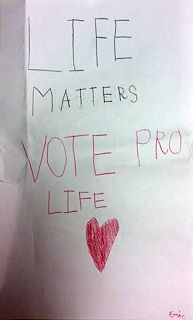 LIFE
MATTERS
VOTE PRO
LIFE
Eric